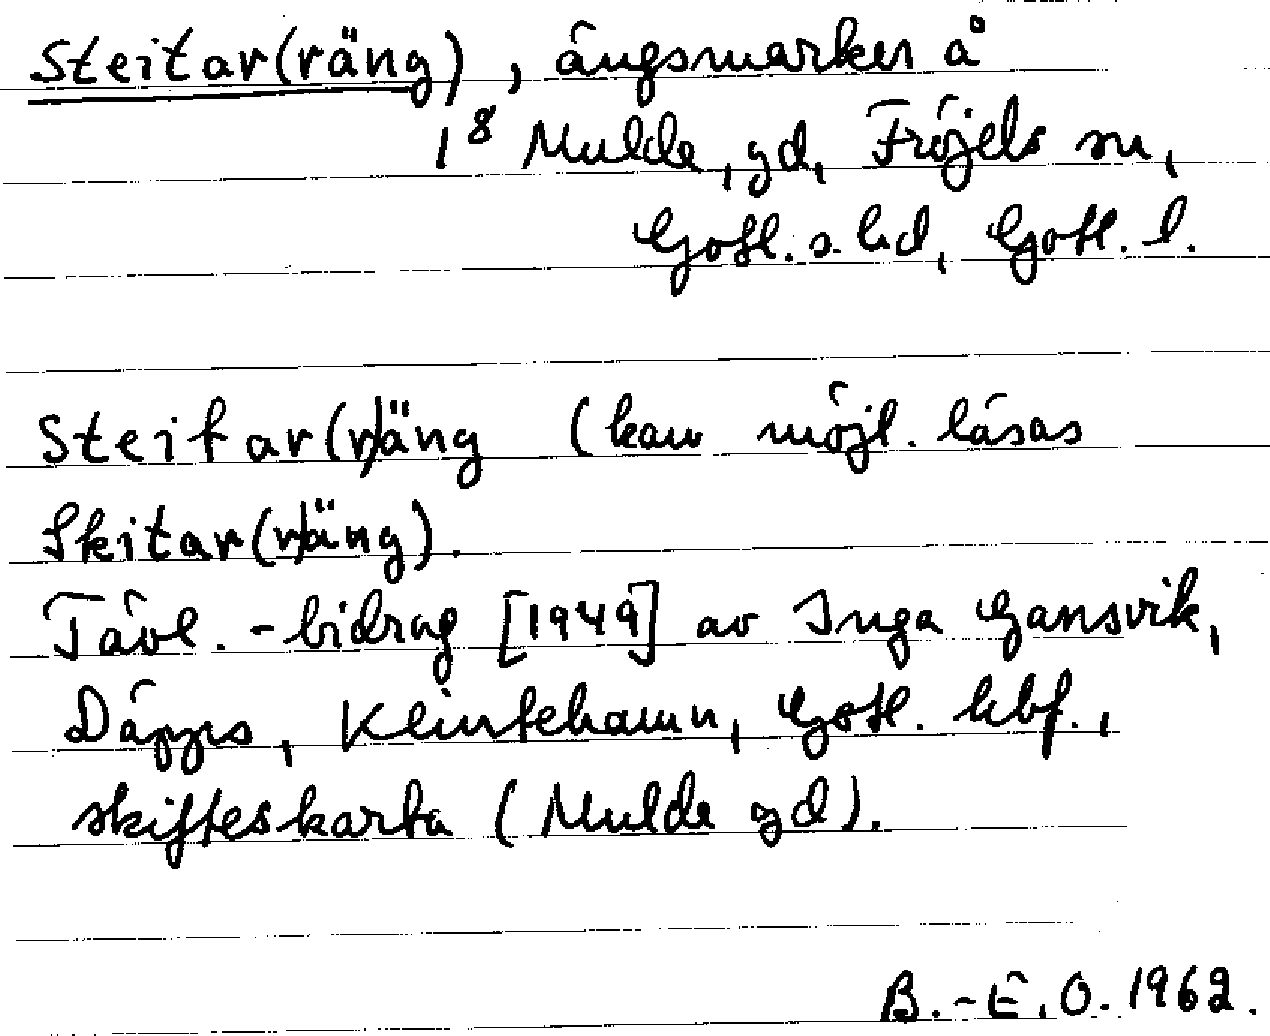 Steitar(räng), ängsmarker å
1⁸ Mulde, gd, Fröjels sn,
Gotl. s. hd, Gotl. l.
Steitar(r)äng (kan möjl. läsas
Skitar(r)äng).
Tävl.-bidrag [1949] av Inga Gansvik,
Däpps, Klintehamn, Gotl. hbf.,
skifteskarta (Mulde gd).
B.-E.O. 1962.